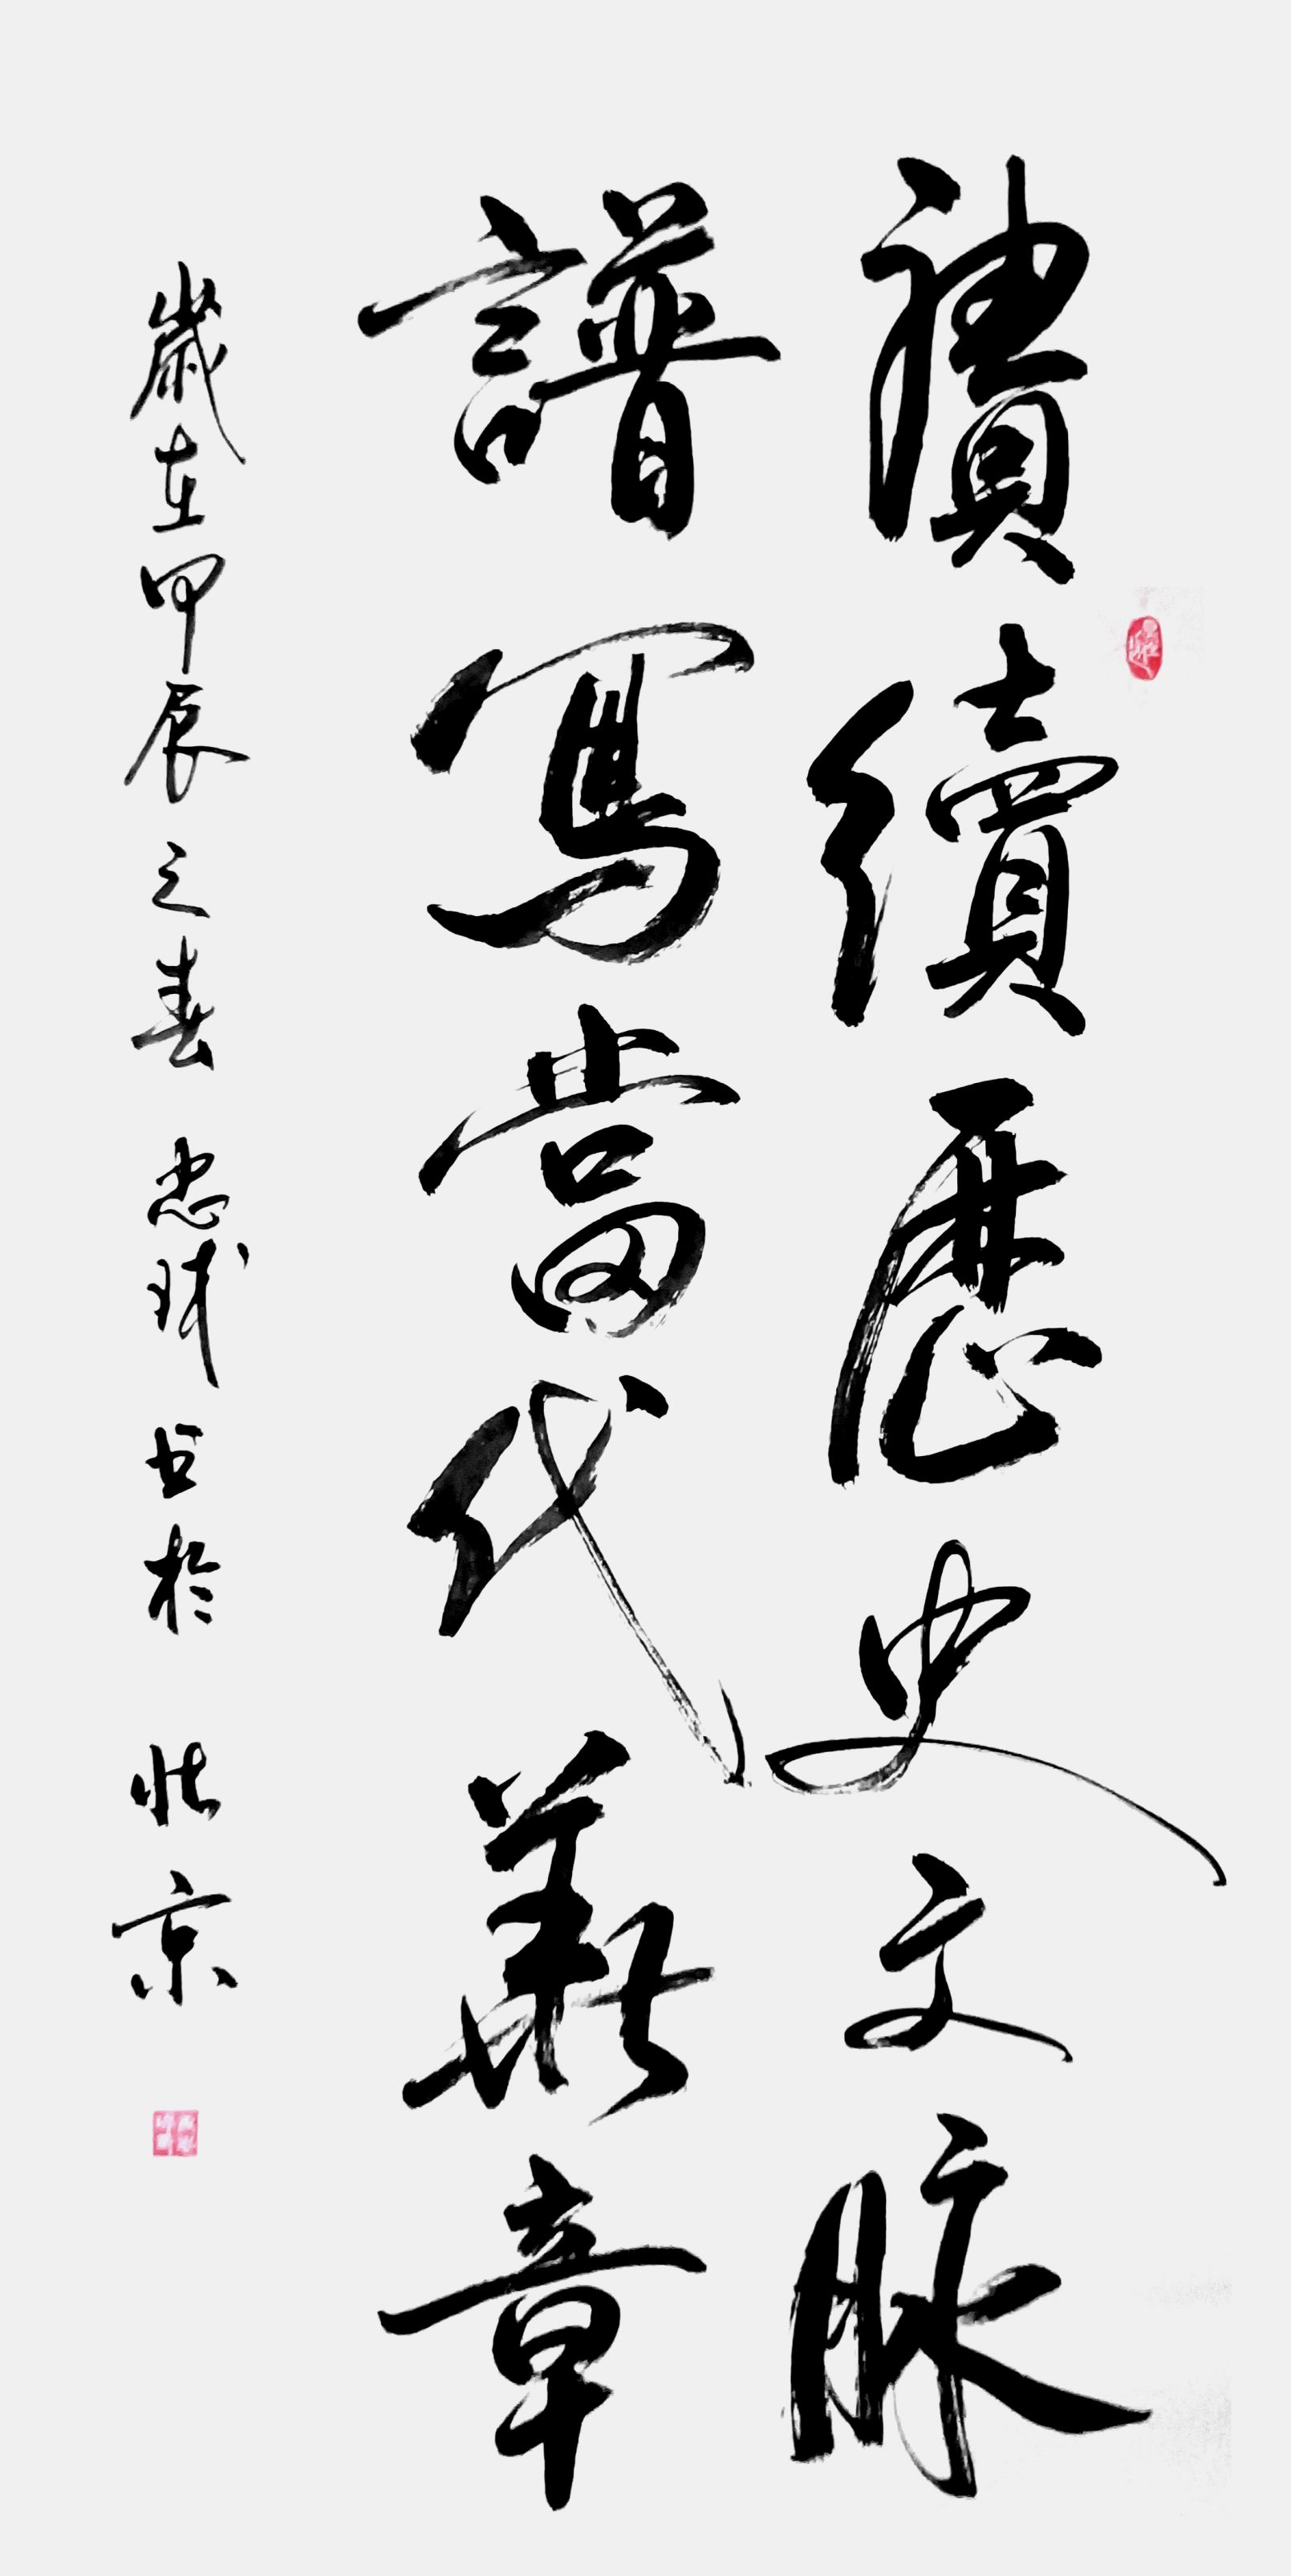 賡續歷史文脉
譜寫當代華章
歲在甲辰之春 忠球 書於 北京